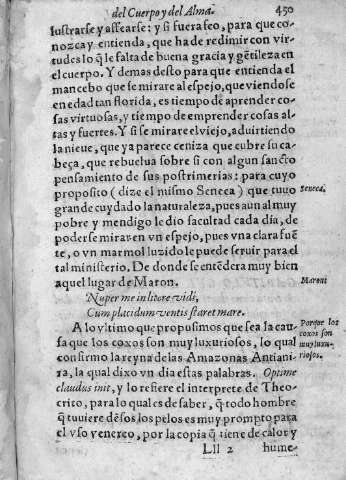 del Cuerpo y del Alma. 450
lustrarse y assearse: y si fuera feo, para que co-
nozca y entienda, que ha de redimir con vir-
tudes lo q̃ le falta de buena gracia y gẽtileza en
el cuerpo. Y demas desto para que entienda el
mancebo que se mirare al espejo, que viendose
en edad tan florida, es tiempo de aprender co-
sas virtuosas, y tiempo de emprender cosas al-
tas y fuertes. Y si se mirare el viejo, aduirtiendo
la nieue, que ya parece ceniza que cubre su ca-
beça, que rebuelua sobre si con algun sancto
pensamiento de sus postrimerias: para cuyo
proposito (dize el mismo Seneca) que tuuo
Seneca,
grande cuydado la naturaleza, pues aun al muy
pobre y mendigo le dio facultad cada dia, de
poder se mirar en vn espejo, pues vna clara fuẽ
te, o vn marmol luzido le puede seruir para el
tal ministerio. De donde se entẽdera muy bien
aquel lugar de Maron.
Maron:
Nuper me in litore vidi,
Cum placidum ventis staret mare.
A lo vltimo que propusimos que sea la cau-
sa que los coxos son muy luxuriosos, lo qual
Porque los
coxos son
muy luxu-
riosos.
confirmo la reyna de las Amazonas Antiani-
ra, la qual dixo vn dia estas palabras. Optime
claudus init, y lo refiere el interprete de Theo-
crito, para lo qual es de saber, q̃ todo hombre
q̃ tuuiere dẽsos los pelos es muy prompto para
el vso venereo, por la copia q̃ tiene de calor y
Lll 2 hume-